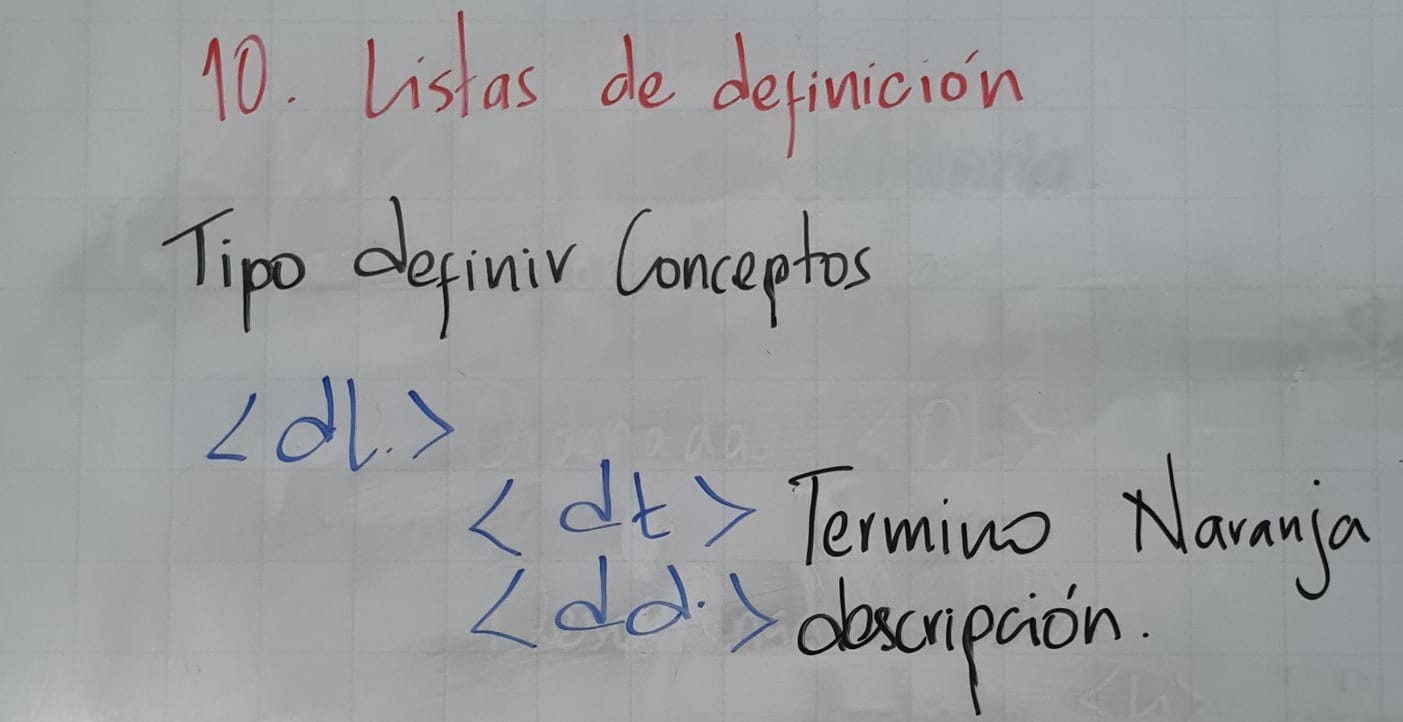 10. Listas de definición
Tipo definir Conceptos
<dl.>
<dt> Termino Naranja
<dd.> descripción.